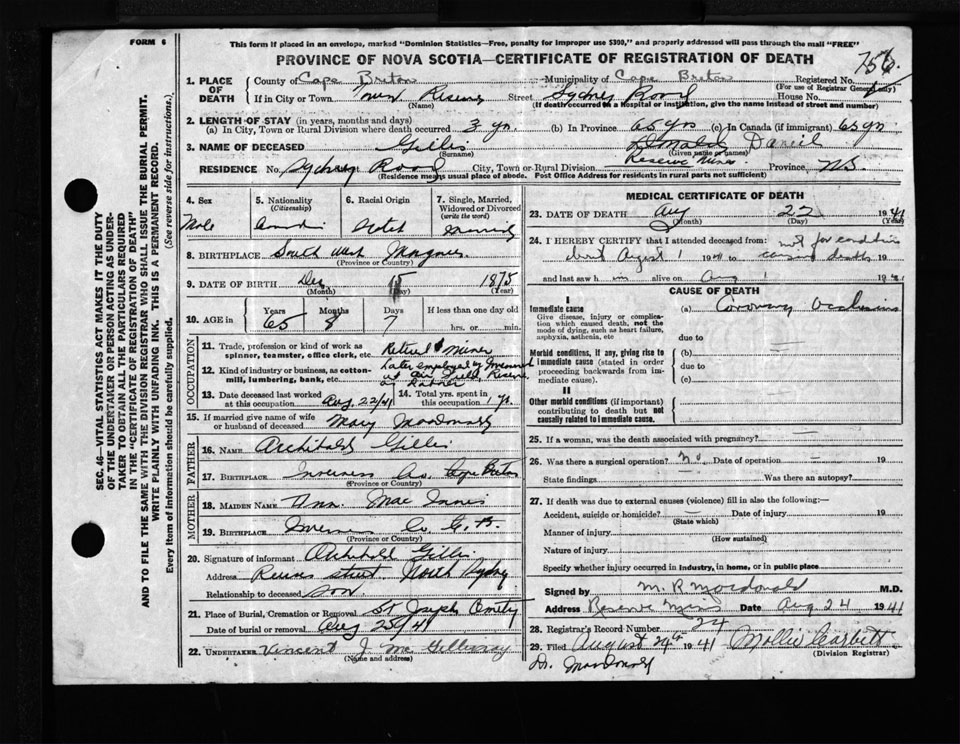 FORM 6
This form if placed in an envelope, marked "Dominion Statistics—Free, penalty for improper use $300," and properly addressed will pass through the mail "FREE"
PROVINCE OF NOVA SCOTIA—CERTIFICATE OF REGISTRATION OF DEATH
756
1. PLACE OF DEATH
County of Cape Breton Municipality of Cape Breton Registered No.
(For use of Registrar General only)
If in City or Town Reserve Street Sydney Road House No.
(Name) (If death occurred in a Hospital or Institution, give the name instead of street and number)
2. LENGTH OF STAY (in years, months and days)
(a) In City, Town or Rural Division where death occurred 3 yr. (b) In Province 65 yrs (c) In Canada (if immigrant) 65 yr
3. NAME OF DECEASED Gillis Donald Daniel
(Surname) (Given name or names)
RESIDENCE No. Sydney Road City, Town or Rural Division Reserve Mines Province N.S.
(Residence means usual place of abode. Post Office Address for residents in rural parts not sufficient)
4. Sex Male
5. Nationality (Citizenship)
6. Racial Origin Scotch
7. Single, Married, Widowed or Divorced (write the word) Married
8. BIRTHPLACE South West Margaree
(Province or Country)
9. DATE OF BIRTH Dec 15 1875
(Month) (Day) (Year)
10. AGE in Years Months Days If less than one day old
65 8 7 hrs. or min.
OCCUPATION
11. Trade, profession or kind of work as spinner, teamster, office clerk, etc. Retired Miner
12. Kind of industry or business, as cotton-mill, lumbering, bank, etc. Later employed by Government at Air Field, Reserve as Laborer
13. Date deceased last worked at this occupation Aug 22/41
14. Total yrs. spent in this occupation 1 yr.
15. If married give name of wife or husband of deceased Mary MacDonald
FATHER
16. NAME Archibald Gillis
17. BIRTHPLACE Inverness Co. Cape Breton
(Province or Country)
MOTHER
18. MAIDEN NAME Ann MacInnis
19. BIRTHPLACE Inverness Co C. B.
(Province or Country)
20. Signature of informant Archibald Gillis
Address street North Sydney
Relationship to deceased Son
21. Place of Burial, Cremation or Removal St Josephs Cemetery
Date of burial or removal Aug 25/41
22. UNDERTAKER Vincent J. McGillivray
(Name and address)
MEDICAL CERTIFICATE OF DEATH
23. DATE OF DEATH Aug 22 1941
(Month) (Day)
24. I HEREBY CERTIFY that I attended deceased from: not for condition
but August 1 1941 to causing death 19
and last saw h im alive on Aug 1 19
CAUSE OF DEATH
I
Immediate cause (a) Coronary Occlusion
Give disease, injury or complication which caused death, not the mode of dying, such as heart failure, asphyxia, asthenia, etc
due to
Morbid conditions, if any, giving rise to immediate cause (stated in order proceeding backwards from immediate cause). (b)
due to
(c)
II
Other morbid conditions (if important) contributing to death but not causally related to immediate cause.
25. If a woman, was the death associated with pregnancy?
26. Was there a surgical operation? No. Date of operation — 19
State findings Was there an autopsy?
27. If death was due to external causes (violence) fill in also the following:—
Accident, suicide or homicide? — Date of injury 19
(State which)
Manner of injury
(How sustained)
Nature of injury
Specify whether injury occurred in industry, in home, or in public place
Signed by M. R. Macdonald M.D.
Address Reserve Mines Date Aug 24 1941
28. Registrar's Record Number 24
29. Filed August 24th 1941 Mollie Corbett
(Division Registrar)
Dr. MacDonald
SEC. 46—VITAL STATISTICS ACT MAKES IT THE DUTY
OF THE UNDERTAKER OR PERSON ACTING AS UNDER-
TAKER TO OBTAIN ALL THE PARTICULARS REQUIRED
IN THE "CERTIFICATE OF REGISTRATION OF DEATH"
AND TO FILE THE SAME WITH THE DIVISION REGISTRAR WHO SHALL ISSUE THE BURIAL PERMIT.
WRITE PLAINLY WITH UNFADING INK. THIS IS A PERMANENT RECORD.
Every item of information should be carefully supplied. (See reverse side for instructions.)